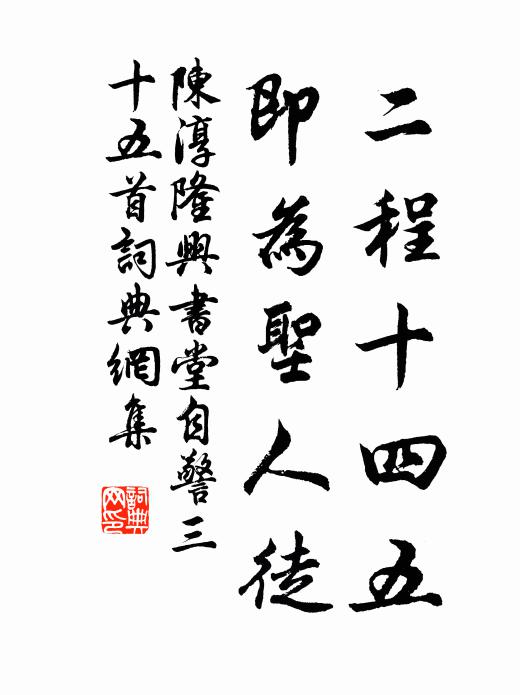 二程十四五
即為聖人徒
陳淳隆興書堂自警三
十五首詞典網集
詞典網印